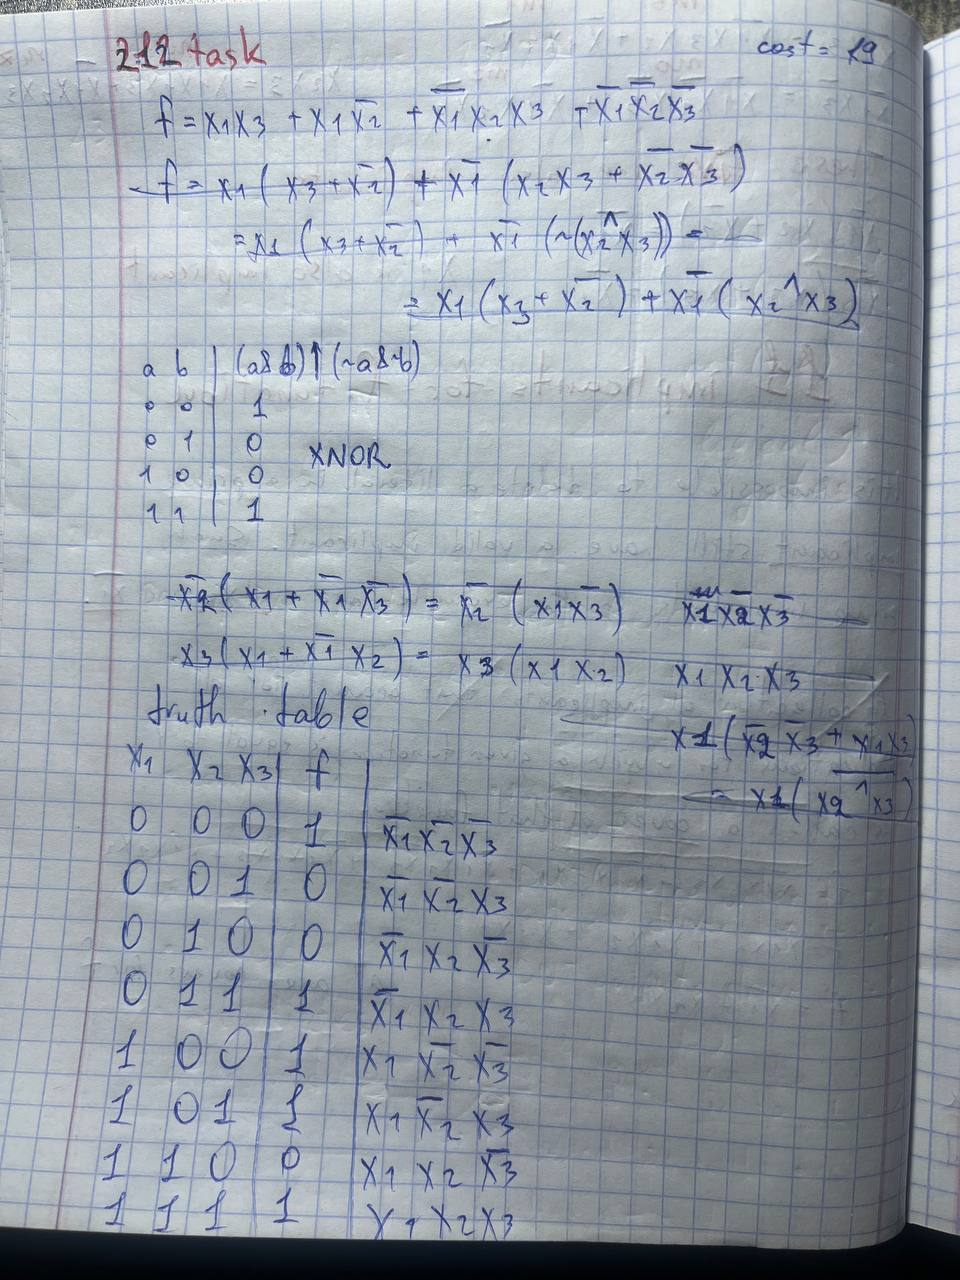 212 task cost = 19
f = x1x3 + x1x̅2 + x̅1x2x3 + x̅1x̅2x̅3
f = x1 ( x3 + x̅2 ) + x̅1 ( x2x3 + x̅2x̅3 )
= x1 ( x3 + x̅2 ) + x̅1 ( ~(x2 ^ x3)) =
= x1 ( x3 + x̅2 ) + x̅1 ( x2 ^ x3 )
a b | (a&b)↑(~a&~b)
0 0 | 1
0 1 | 0
XNOR
1 0 | 0
1 1 | 1
x̅2 ( x1 + x̅1x̅3 ) = x̅2 ( x1x̅3 ) x1x̅2x̅3
x3 ( x1 + x̅1 x2 ) = x3 ( x1 x2 ) x1 x2 x3
truth table
x1 ( x̅2 x̅3 + x1x3
= x1 ( x2 ^ x3 )
x1 x2 x3 | f
0 0 0 | 1 | x̅1x̅2x̅3
0 0 1 | 0 | x̅1 x̅2 x3
0 1 0 | 0 | x̅1 x2 x̅3
0 1 1 | 1 | x̅1 x2 x3
1 0 0 | 1 | x1 x̅2 x̅3
1 0 1 | 1 | x1 x̅2 x3
1 1 0 | 0 | x1 x2 x̅3
1 1 1 | 1 | x1 x2x3